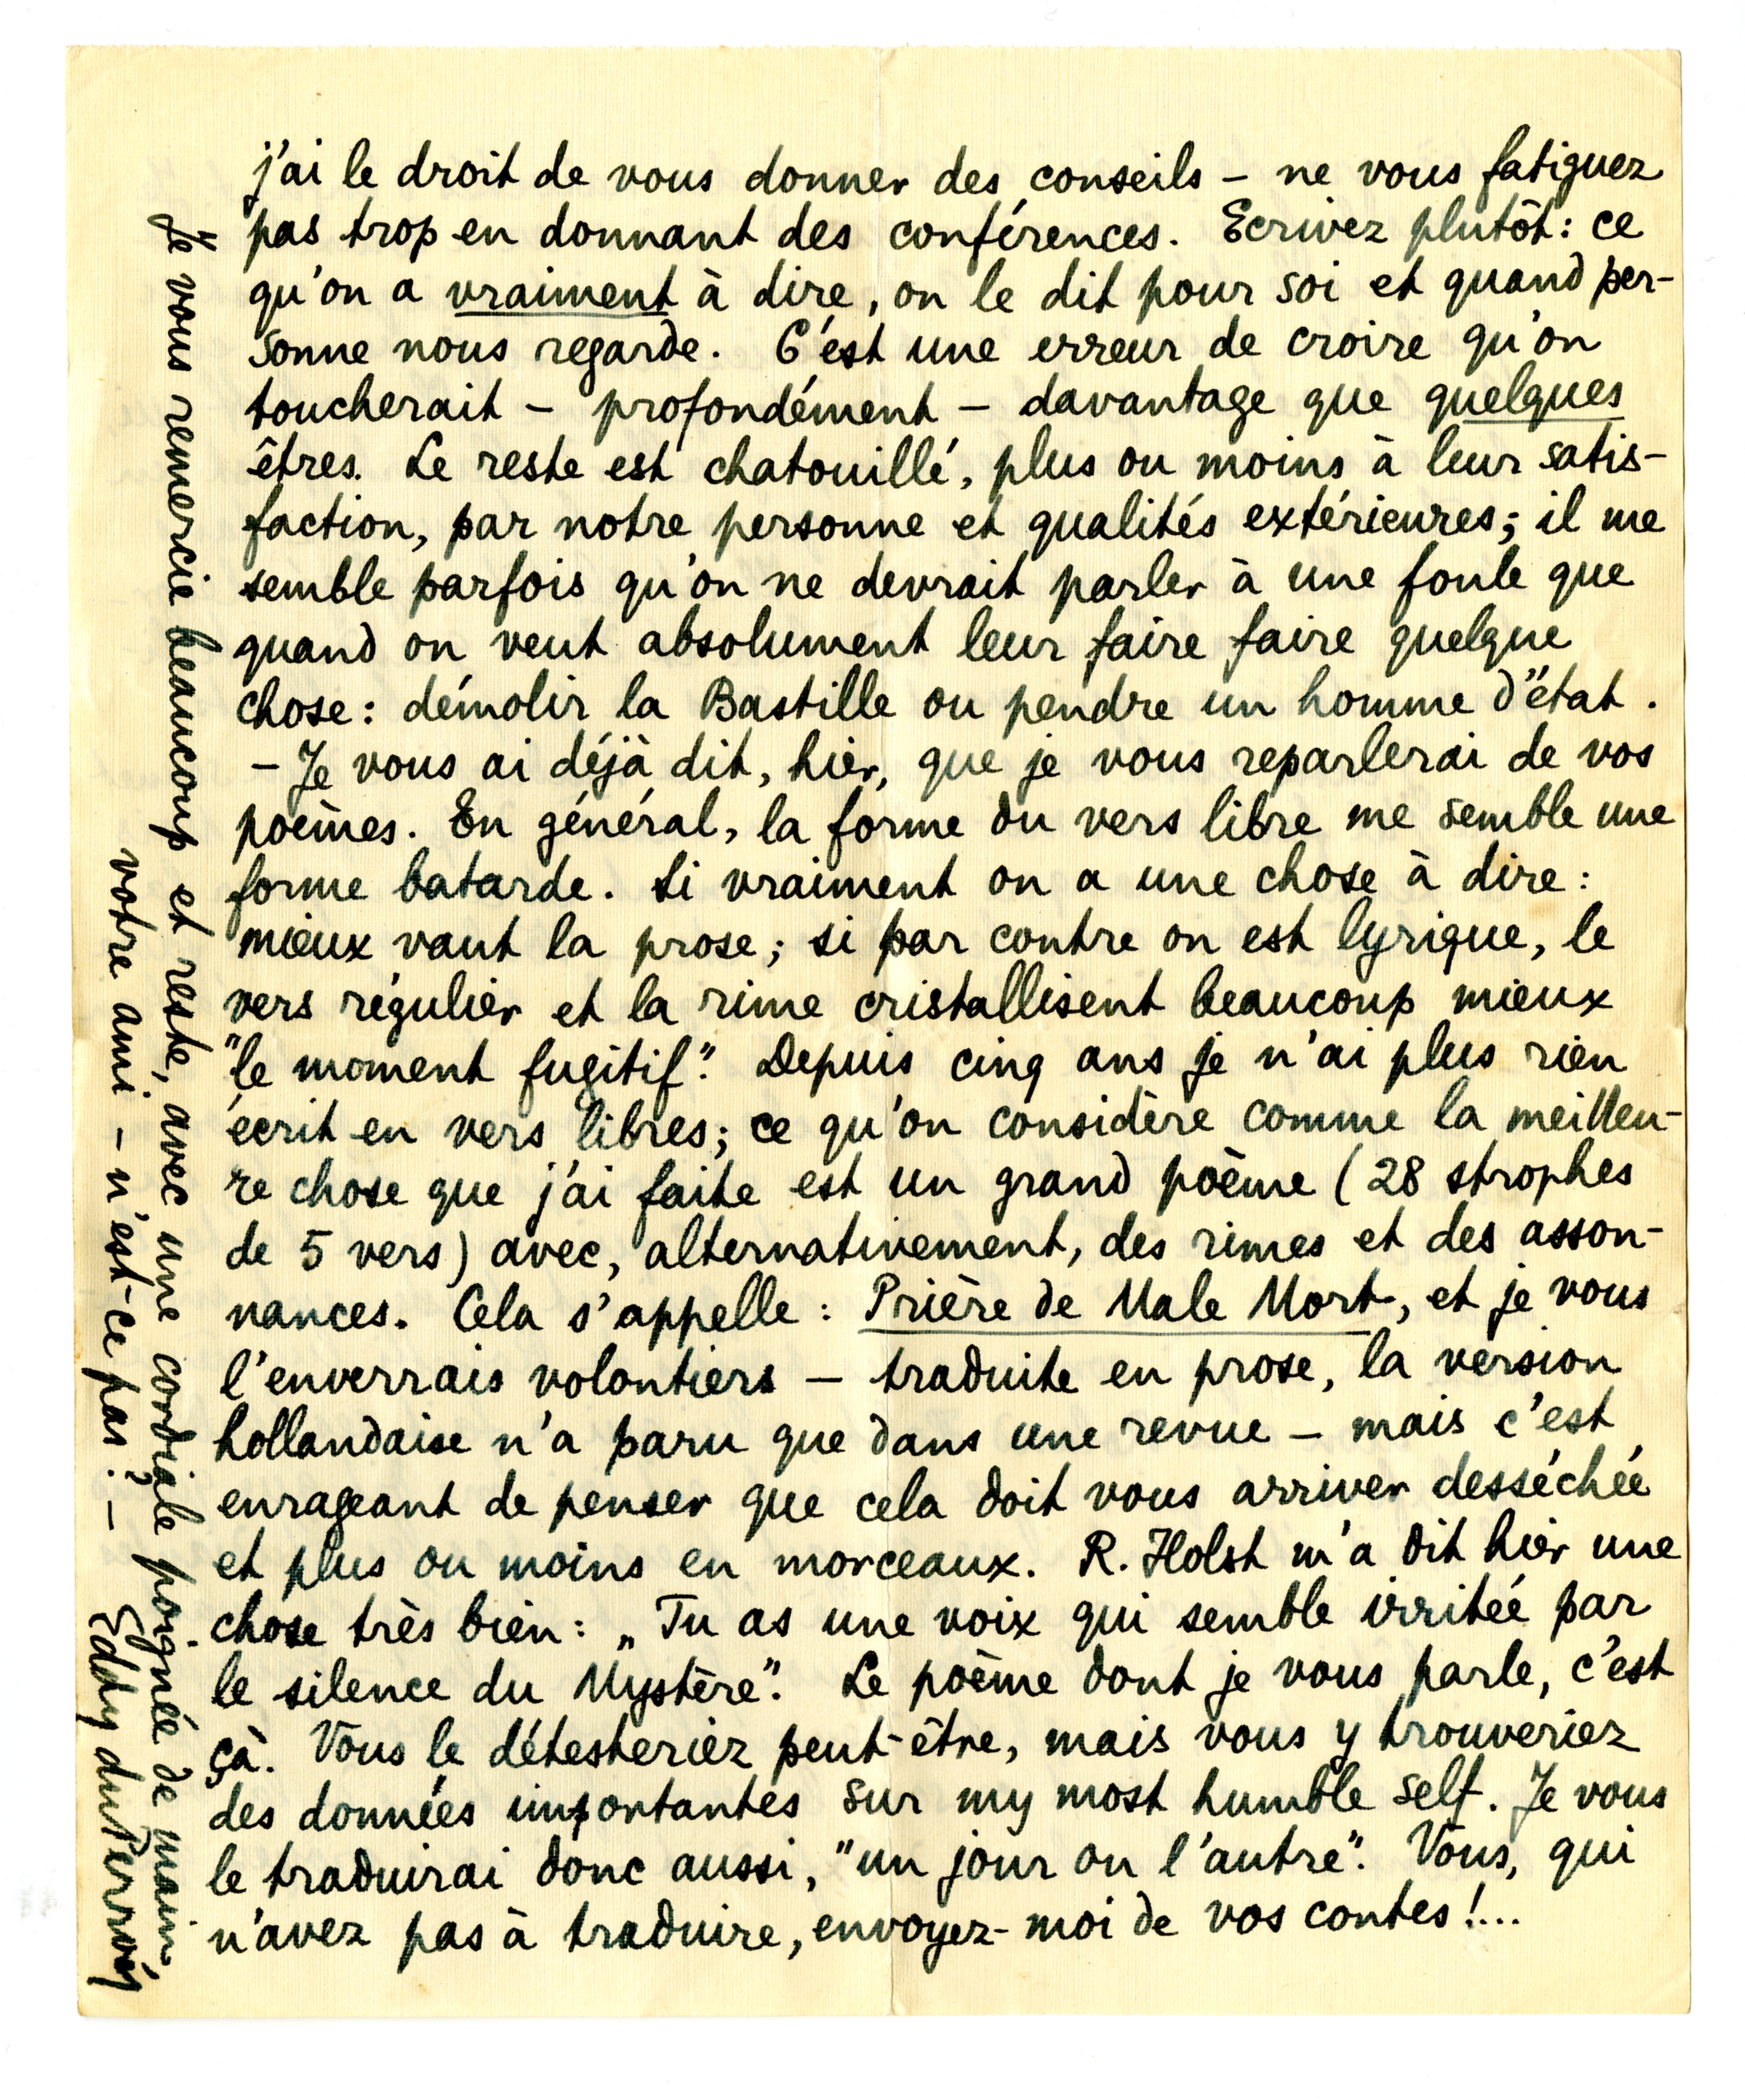 j'ai le droit de vous donner des conseils – ne vous fatiguez
pas trop en donnant des conférences. Ecrivez plutôt: ce
qu'on a vraiment à dire, on le dit pour soi et quand per-
sonne nous regarde. C'est une erreur de croire qu'on
toucherait – profondément – davantage que quelques
êtres. Le reste est chatouillé, plus ou moins à leur satis-
faction, par notre personne et qualités extérieures; il me
semble parfois qu'on ne devrait parler à une foule que
quand on veut absolument leur faire faire quelque
chose: démolir la Bastille ou pendre un homme d'état.
– Je vous ai déjà dit, hier, que je vous reparlerai de vos
poèmes. En général, la forme du vers libre me semble une
forme batarde. Si vraiment on a une chose à dire:
mieux vaut la prose; si par contre on est lyrique, le
vers régulier et la rime cristallisent beaucoup mieux
"le moment fugitif". Depuis cinq ans je n'ai plus rien
écrit en vers libres; ce qu'on considère comme la meilleu-
re chose que j'ai faite est un grand poème (28 strophes
de 5 vers) avec, alternativement, des rimes et des asson-
nances. Cela s'appelle: Prière de Male Mort, et je vous
l'enverrais volontiers – traduite en prose, la version
hollandaise n'a paru que dans une revue – mais c'est
enrageant de penser que cela doit vous arriver desséchée
et plus ou moins en morceaux. R. Holst m'a dit hier une
chose très bien: „Tu as une voix qui semble irritée par
le silence du Mystère". Le poème dont je vous parle, c'est
çà. Vous le détesteriez peut-être, mais vous y trouveriez
des données importantes sur my most humble self. Je vous
le traduirai donc aussi, "un jour ou l'autre". Vous, qui
n'avez pas à traduire, envoyez-moi de vos contes!...
Je vous remercie beaucoup et reste, avec une cordiale poignée de main,
votre ami – n'est-ce pas? –
Eddy du Perron